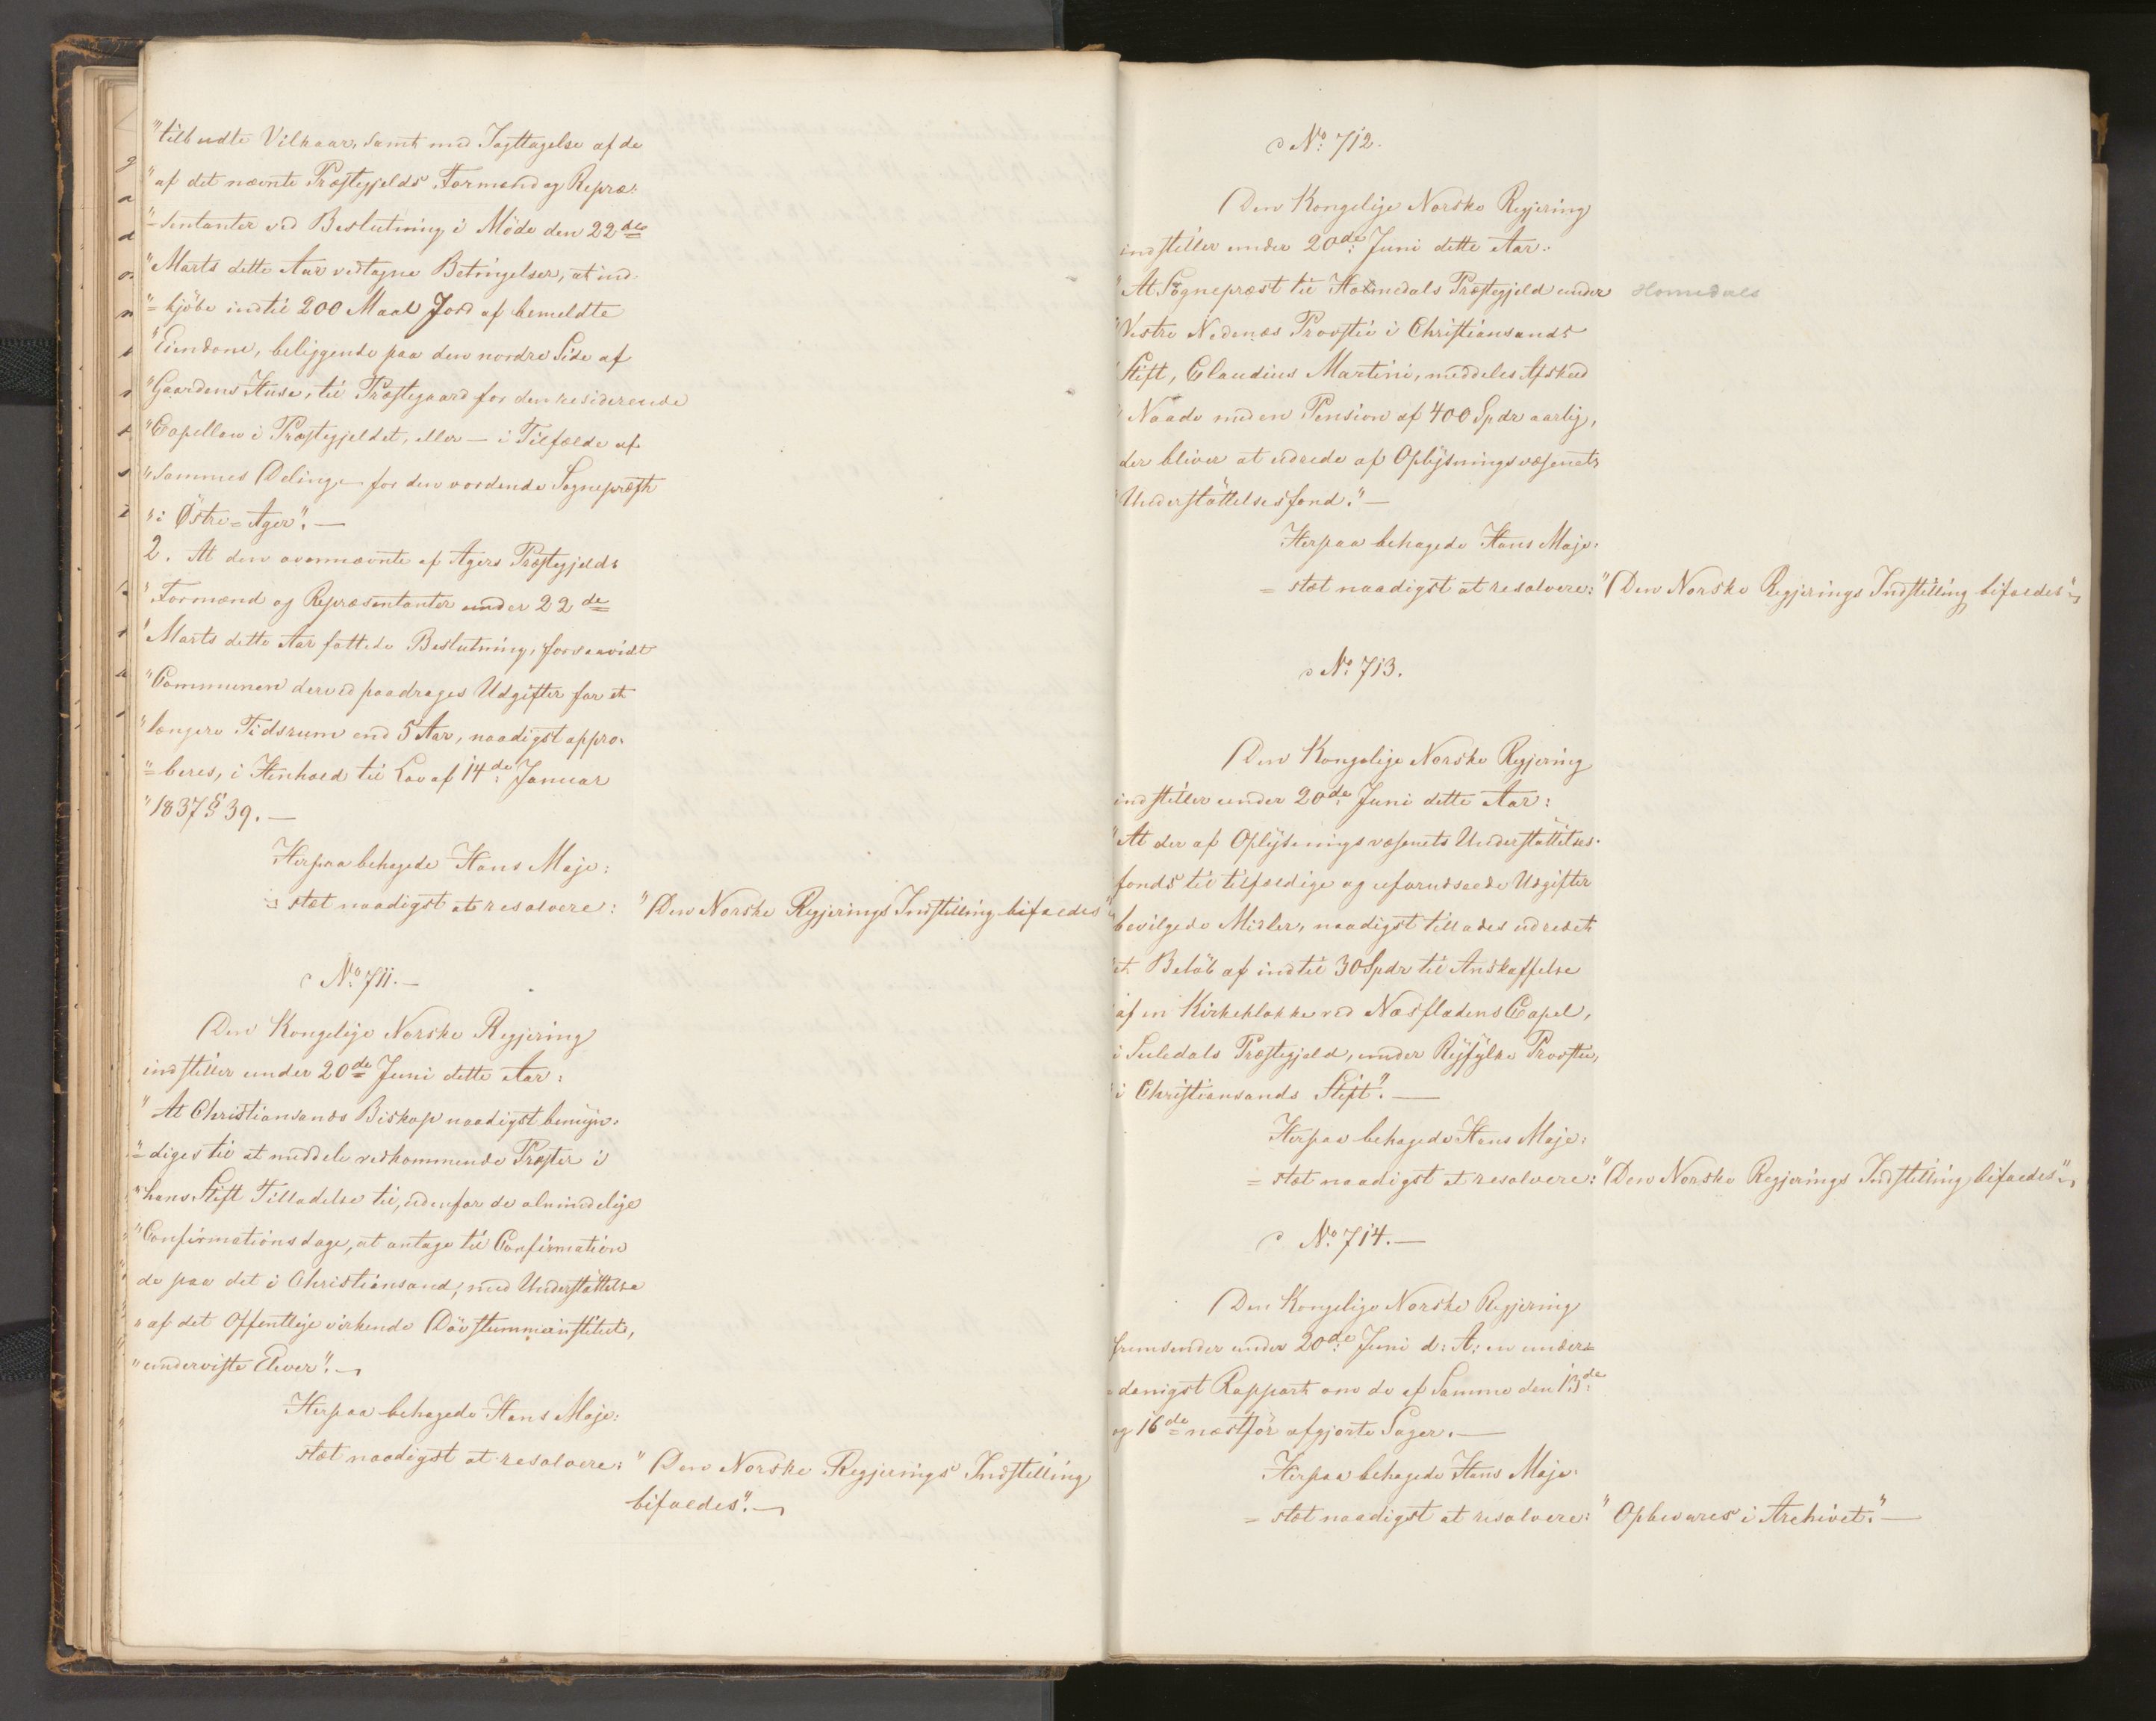 "tilbudte Vilkaar, samt med Iagttagelse af de
"af det nævnte Præstegjelds Formænd og Repræ:
"=sentanter ved Beslutning i Møde den 22de
"Marts dette Aar vedtagne Betingelser, at ind-
"=kjøbe indtil 200 Maal Jord af bemeldte
"Eiendom, beliggende paa den nordre Side af
"Gaardens Huse, til Præstegaard for den residerende
"Capellan i Præstegjeldet, eller — i Tilfælde af
"Sammes Deling — for den vordende Sognepræst
"i Østre=Ager". —
2. At den ovennævnte af Agers Præstegjelds
"Formænd og Repræsentanter under 22de
"Marts dette Aar fattede Beslutning, forsaavidt
"Communen derved paadrages Udgifter for et
"længere Tidsrum end 5 Aar, naadigst appro-
"=beres, i Henhold til Lov af 14de Januar
"1837 § 39. —
Herpaa behagede Hans Maje:
=stæt naadigst at resolvere: "Den Norske Regjerings Indstilling bifaldes"
No. 711. —
Den Kongelige Norske Regjering
indstiller under 20de Juni dette Aar:
"At Christiansands Biskop naadigst bemyn-
"=diges til at meddele vedkommende Præster i
"hans Stift Tilladelse til, udenfor de almindelige
"Confirmationsdage, at antage til Confirmation
de paa det i Christiansand, med Understøttelse
"af det Offentlige virkende Døvstummeinstitut,
"underviste Elever". —
Herpaa behagede Hans Maje:
stæt naadigst at resolvere: "Den Norske Regjerings Indstilling
bifaldes". —
No. 712.
Den Kongelige Norske Regjering
indstiller under 20de Juni dette Aar:
"At Sognepræst til Holmedals Præstegjeld under Homedals
"Vestre Nedenæs Provstie i Christiansands
"Stift, Claudius Martini, meddeles Afsked
"Naade med en Pension af 400 Spdr aarlig,
der bliver at udrede af Oplysningsvæsenets
"Understøttelsesfond." —
Herpaa behagede Hans Maje-
=stæt naadigst at resolvere: "Den Norske Regjerings Indstilling bifaldes".
No. 713.
Den Kongelige Norske Regjering
indstiller under 20de Juni dette Aar:
"At der af Oplysningsvæsenets Understøttelses-
fonds til tilfældige og uforudseede Udgifter
bevilgede Midler, naadigst tillades udredet
et Beløb af indtil 30 Spdr til Anskaffelse
af en Kirkeklokke ved Næsfladens Capel,
i Suledals Præstegjeld, under Ryfylke Provstie,
i Christiansands Stift". —
Herpaa behagede Hans Maje:
=stæt naadigst at resolvere: "Den Norske Regjerings Indstilling bifaldes".
No. 714. —
Den Kongelige Norske Regjering
fremsender under 20de Juni d: A: en under=
=danigst Rapport om de af Samme den 13de
og 16de næstfør afgjorte Sager. —
Herpaa behagede Hans Maje-
=stæt naadigst at resolvere: "Opbevares i Archivet." —